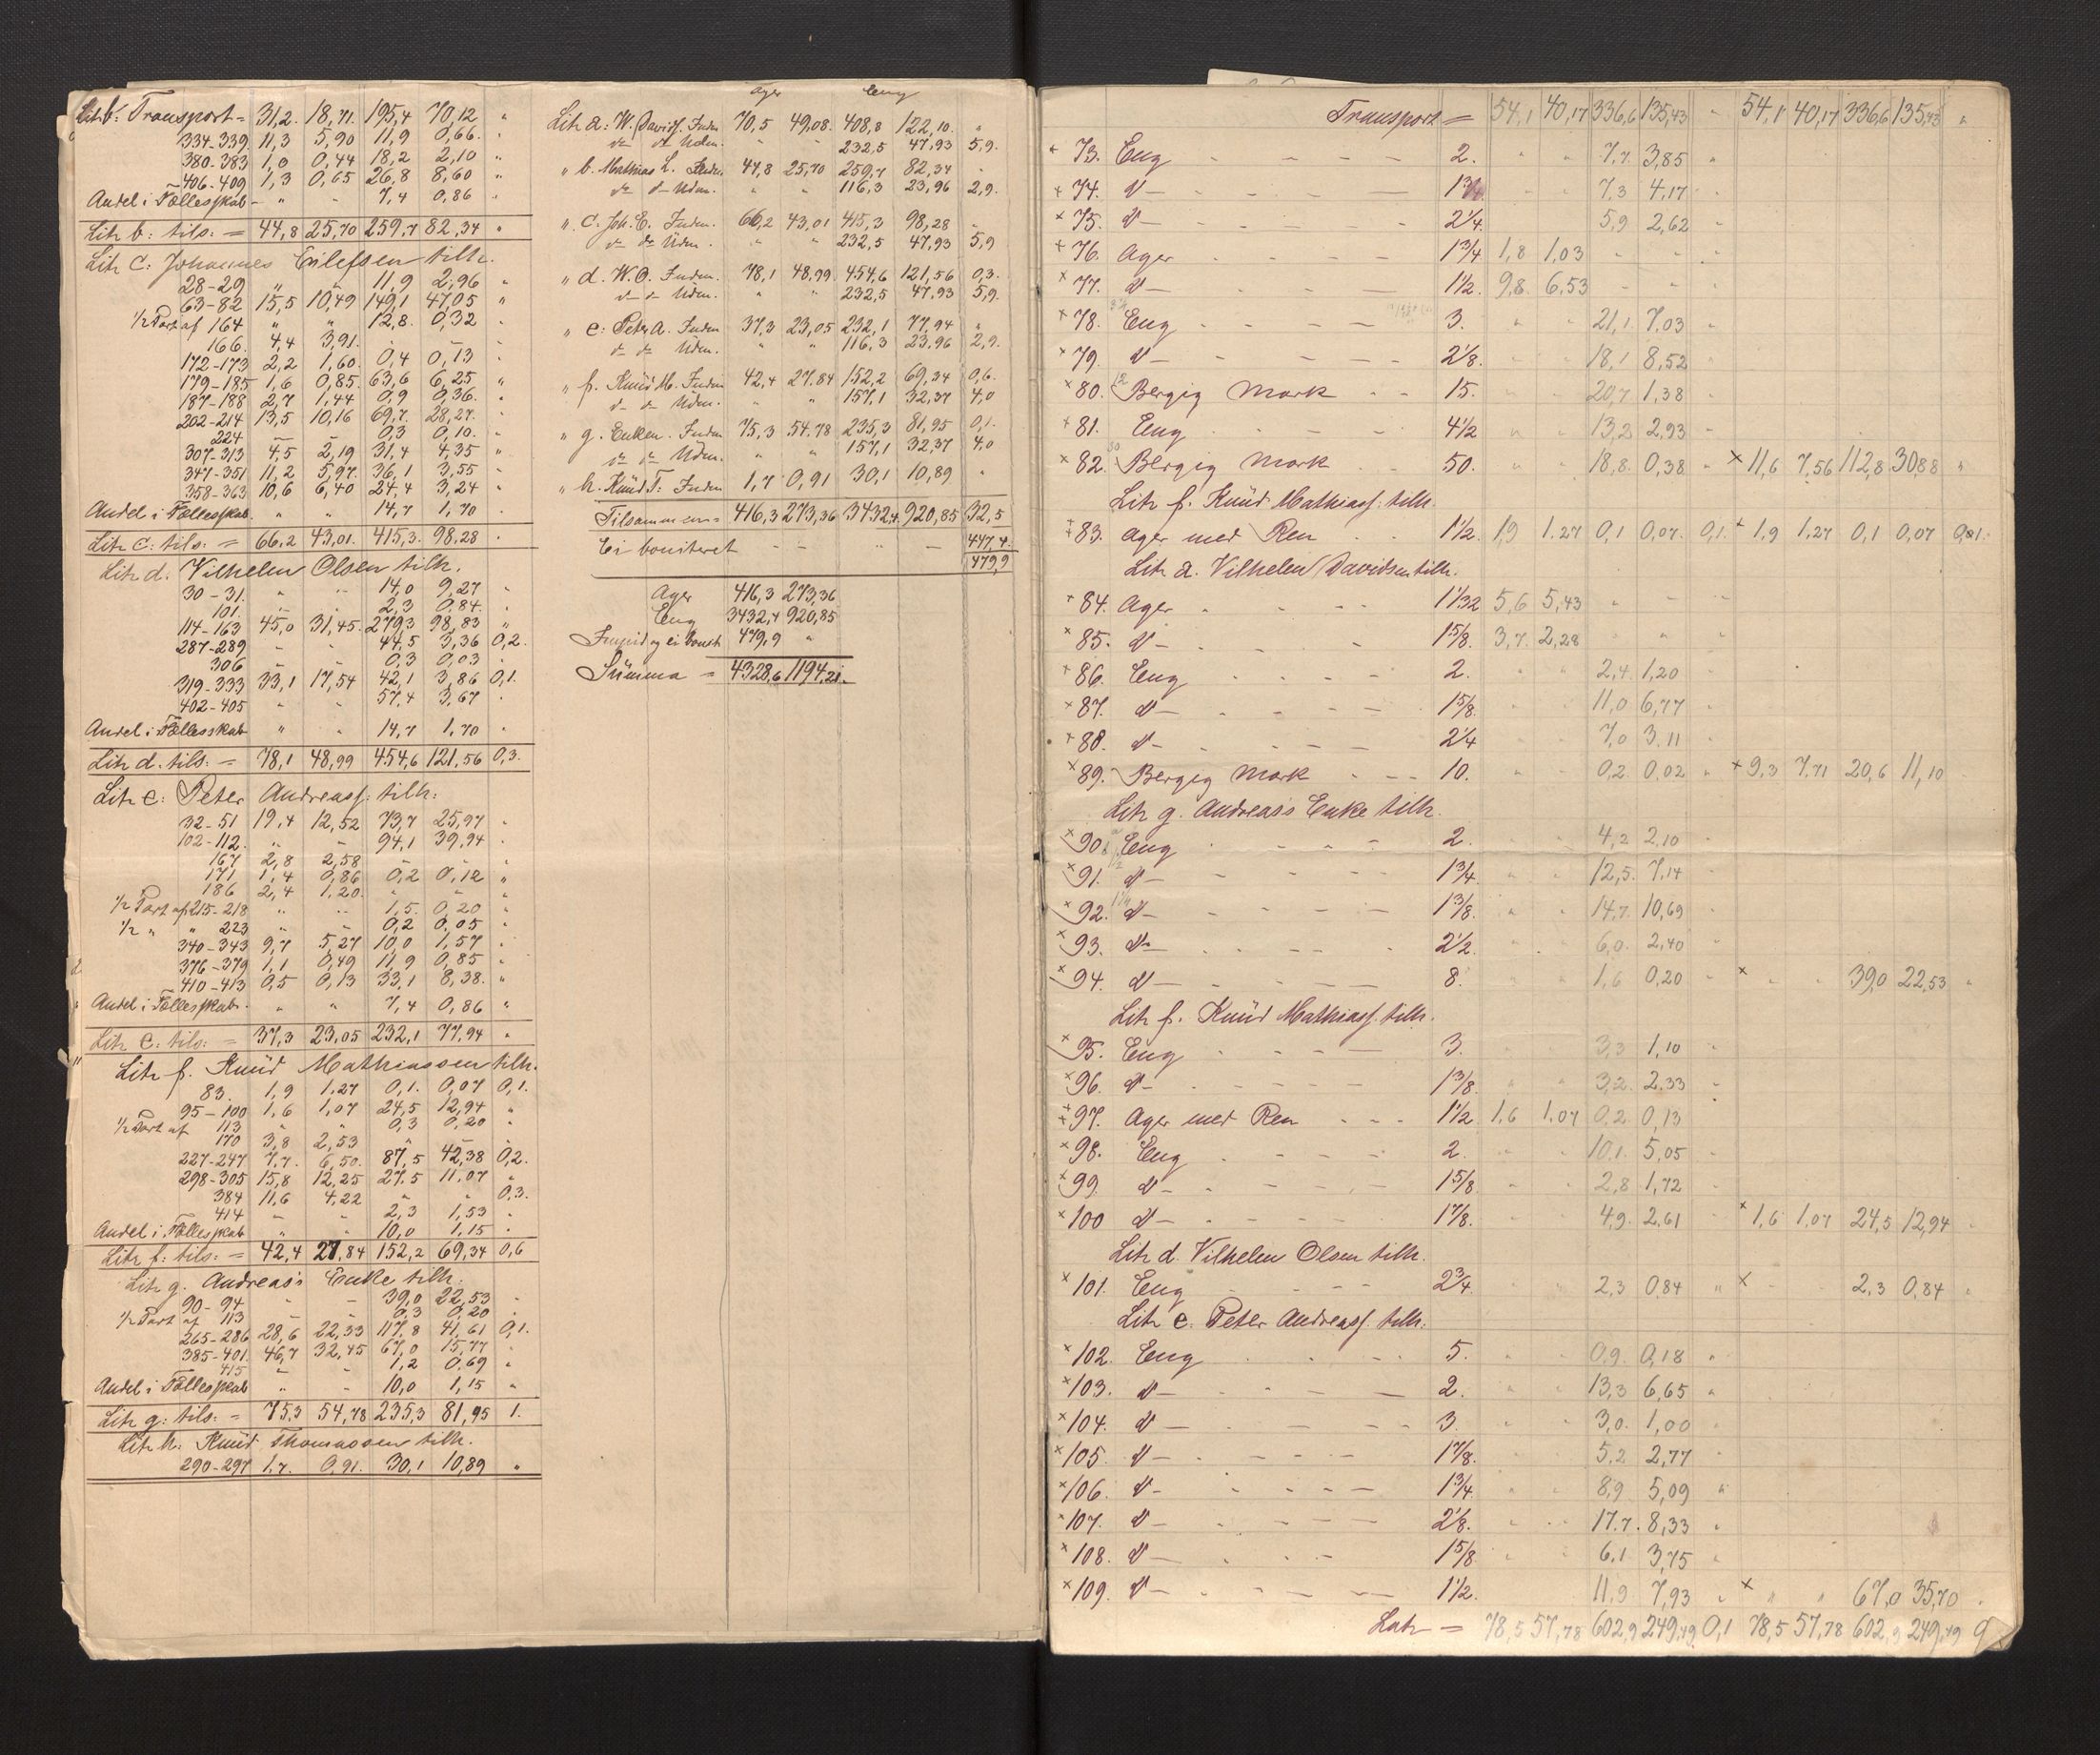 Litr b: Transport = 31,2. 18,71. 195,4 70,12 "
334-339. 11,3 5,90 11,9 0,66. "
380-383 1,0 0,44 18,2 2,10 "
406-409 1,3 0,65 26,8 8,60 "
Andel i Fællesskab - " - 7,4 0,86 "
Litr b: tils: = 44,8 25,70 259,7 82,34 "
Litr C: Johannes Eilefsen tilh.
28-29 " " 11,9 2,96 "
63-82 15,5 10,49 149,1 47,05 "
1/2 Part af 164 " " 12,8. 0,32 "
166. 4,4 3,91. - -
172-173 2,2 1,60. 0,4 0,13 "
179-185 1,6 0,85. 63,6 6,25 "
187-188 2,7 1,44 0,9 0,36. "
202-214 13,5 10,16 69,7. 28,27. "
224 - - 0,3 0,10. "
307-313 4,5 2,19 31,4 4,35 "
347-351 11,2 5,97. 36,1 3,55 "
358-363 10,6 6,40 24,4 3,24 "
Andel i Fællesskab. " " 14,7 1,70 "
Litr C: tils: = 66,2 43,01. 415,3. 98,28 "
Litr d. Vilhelm Olsen tilh.
30-31. " " 14,0 9,27 "
101. - - 2,3 0,84. "
114-163 45,0 31,45. 279,3 98,83 "
287-289 - - 44,5 3,36 0,2.
306 - - 0,3 0,03 -
319-333 33,1 17,54 42,1 3,86 0,1.
402-405 " " 57,4 3,67 "
Andel i Fællesskab " " 14,7 1,70 "
Litr d. tils: = 78,1 48,99 454,6 121,56 0,3.
Litr e: Peter Andreass: tilh:
32-51 19,4 12,52 73,7 25,97 "
102-112. " - 94,1 39,94 "
167 2,8 2,58 - - "
171 1,4 0,86 0,2 0,12 "
186 2,4 1,20. " " "
1/2 Part af 215-218 " " 1,5. 0,20 "
1/2 " " 223 " - 0,2 0,05 "
340-343 9,7 5,27 10,0 1,57 "
376-379 1,1 0,49 11,9 0,85 "
410-413 0,5 0,13 33,1 8,38. "
Andel i Fællesskab. " " 7,4 0,86 "
Litr e: tils: = 37,3 23,05 232,1 77,94 "
Litr f. Knüd Mathiassen tilh.
83. 1,9 1,27 0,1. 0,07 0,1.
95-100 1,6 1,07 24,5 12,94 "
1/2 Part af 113 " " 0,3 0,20 "
170 3,8 2,53 " - -
227-247 7,7. 6,50. 87,5 42,38 0,2.
298-305 15,8 12,25 27,5 11,07 "
384 11,6 4,22 " " 0,3.
414 - - 2,3 1,53 "
Andel i Fællesskab " " 10,0 1,15 "
Litr f: tils: = 42,4 27,84 152,2 69,34 0,6
Litr g. Andreas's Enke tilh.
90-94 " - 39,0 22,53 "
1/2 Part af 113 - - 0,3 0,20 "
265-286 28,6 22,33 117,8 41,61 0,1.
385-401. 46,7 32,45 67,0 15,77 "
415 - - 1,2 0,69 "
Andel i Fællesskab " - 10,0 1,15 "
Litr g: tils: = 75,3 54,78 235,3 81,95 1.
Litr h: Knüd Thomassen tilh.
290-297 1,7. 0,91. 30,1 10,89 "
Ager Eng
Litr a: W. Davids. Inden 70,5 49,08. 408,8 122,10. "
do do Uden. " " 232,5 47,93 5,9.
" b. Mathias L. Inden 44,8 25,70 259,7 82,34 -
do do Uden. " " 116,3 23,96 2,9.
" C. Joh. E. Inden. 66,2 43,01 415,3 98,28 "
do do Uden. " " 232,5 47,93 5,9
" d. W. O. Inden. 78,1 48,99 454,6 121,56 0,3.
do do Uden. " " 232,5 47,93 5,9.
" e: Peter A. Inden 37,3 23,05 232,1 77,94 "
do do Uden. " " 116,3 23,96 2,9.
" f. Knüd M. Inden 42,4 27,84 152,2 69,34 0,6.
do do Uden. " " 157,1 32,37 4,0
" g. Enken. Inden 75,3 54,78 235,3 81,95 0,1.
do do Uden. " " 157,1 32,37 4,0
" h. Knüd T: Inden 1,7 0,91 30,1 10,89 "
Tilsammen = 416,3 273,36 3432,4. 920,85 32,5
Ei boniteret - - " - 447,4.
479,9
Ager 416,3 273,36
Eng 3432,4 920,85
Impid og ei bonit 479,9 "
Sümma = 4328,6 1194,21.
Transport = 54,1 40,17 336,6 135,43 - 54,1 40,17 336,6 135,43 "
× 73. Eng - - - - 2. " " 7,7. 3,85 "
× 74. do - - - - 1 3/4. 7,3 4,17
× 75. do - - - - 2 1/4. 5,9 2,62
× 76. Ager - - - - 1 3/4 1,8 1,03 - -
× 77. do - - - - 1 1/2. 9,8. 6,53 - - -
× 78. Eng - - - - 3. " " 21,1. 7,03 "
× 79. do - - - - 2 1/8. 18,1 8,52
× 80. Bergig Mark - - 15. " " 20,7 1,38
× 81. Eng - - - - 4 1/2 " " 13,2 2,93 -
× 82. Bergig Mark - - 50. " " 18,8. 0,38 " × 11,6 7,56 112,8. 30,88 "
Litr f. Knüd Mathiass: tilh.
× 83. Ager med Ren - - 1 1/2. 1,9 1,27 0,1 0,07. 0,1. × 1,9 1,27 0,1 0,07 0,1.
Litr a. Vilhelm Davidsen tilh.
× 84. Ager - - - - 1 1/32 5,6 5,43 - - -
× 85. do - - - - 1 5/8. 3,7. 2,28 " " "
× 86. Eng - - - - 2. " " 2,4. 1,20 -
× 87. do - - - - 1 5/8. 11,0 6,77
× 88. do - - - - 2 1/4 7,0 3,11
× 89. Bergig Mark - - - 10. " - 0,2. 0,02 " × 9,3 7,71 20,6 11,10
Litr g. Andreas's Enke tilh.
× 90. Eng - - - - 2. - - 4,2 2,10 -
× 91. do - - - - 1 3/4. " " 12,5. 7,14 -
× 92. do - - - - 1 3/8. " " 14,7. 10,69 -
× 93. do - - - - 2 1/2. " " 6,0. 2,40 -
× 94. do - - - - 8. " " 1,6 0,20 " × " " 39,0 22,53 "
Litr f. Knüd Mathiass: tilh.
× 95. Eng - - - - 3. " " 3,3 1,10 -
× 96. do - - - - 1 3/8. " " 3,2. 2,33 -
× 97. Ager med Ren - - - 1 1/2 1,6 1,07 0,2 0,13
× 98. Eng - - - - 2. " " 10,1. 5,05 -
× 99. do - - - - 1 5/8. - - 2,8 1,72 -
× 100 do - - - - 1 7/8. - - 4,9. 2,61 × 1,6 1,07 24,5 12,94 -
Litr d. Vilhelm Olsen tilh.
× 101. Eng - - - 2 3/4. " " 2,3 0,84 " × - - 2,3 0,84 "
Litr e. Peter Andreass. tilh:
× 102. Eng - - - - 5. " " 0,9. 0,18 "
× 103. do - - - - 2. - - 13,3 6,65 "
× 104. do - - - - 3. " " 3,0. 1,00 -
× 105. do - - - - 1 7/8. 5,2 2,77 -
× 106. do - - - - 1 3/4. - - 8,9 5,09 "
× 107. do - - - - 2 1/8. - - 17,7. 8,33 "
× 108. do - - - 1 5/8 " " 6,1 3,75 "
× 109. do - - - - 1 1/2. 11,9 7,93 " × " " 67,0 35,70 .
Latr = 78,5 57,78 602,9 249,79 0,1 78,5 57,78 602,9 249,79 9